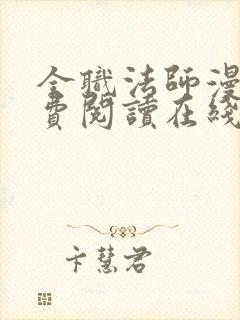 全職法師漫
費閱讀在綫
卞慧君